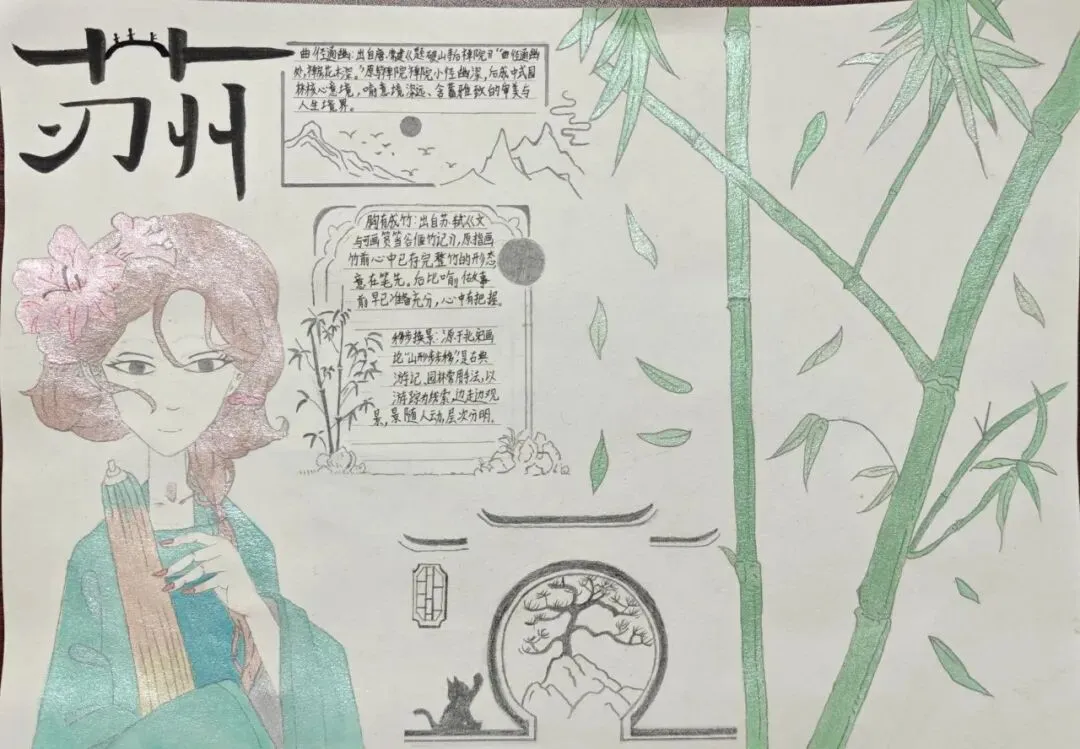 苏州
曲径通幽：出自唐·常建《题破山寺后禅院》"曲径通幽
处，禅房花木深。"原写禅院禅院小径幽深，后成中式园
林核心意境，喻意境深远、含蓄雅致的审美与
人生境界。
胸有成竹：出自苏轼《文
与可画筼筜谷偃竹记》，原指画
竹前心中已存完整竹的形态
意在笔先。后比喻做事
前早已准备充分，心中有把握。
移步换景：源于北宋画
论"山形步步移"，是古典
游记、园林常用手法，以
游踪为线索，边走边观
景，景随人动，层次分明。